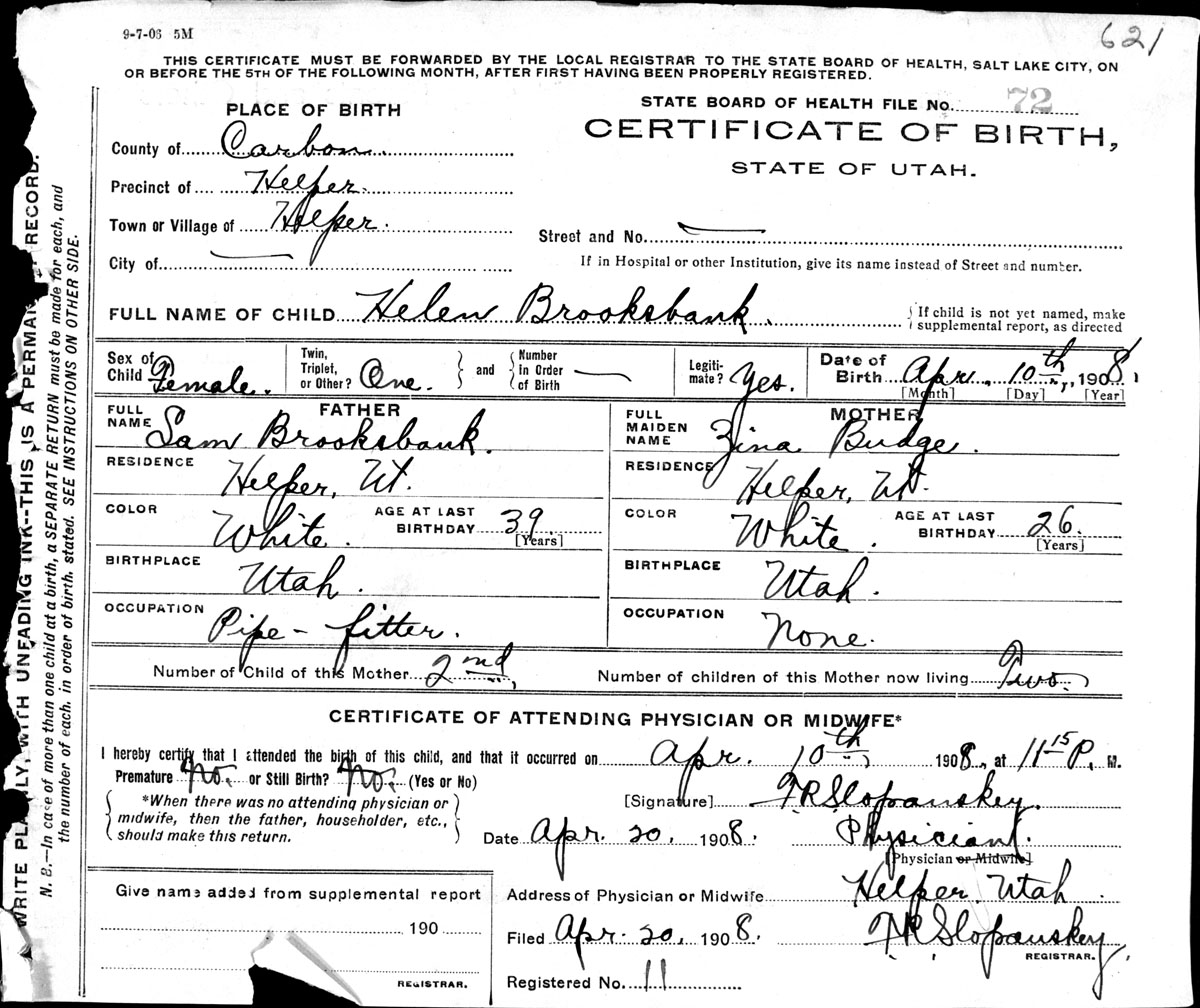 9-7-06 5M
621
THIS CERTIFICATE MUST BE FORWARDED BY THE LOCAL REGISTRAR TO THE STATE BOARD OF HEALTH, SALT LAKE CITY, ON
OR BEFORE THE 5TH OF THE FOLLOWING MONTH, AFTER FIRST HAVING BEEN PROPERLY REGISTERED.
PLACE OF BIRTH
STATE BOARD OF HEALTH FILE No. 72
CERTIFICATE OF BIRTH,
STATE OF UTAH.
County of Carbon.
Precinct of Helper.
Town or Village of Helper.
City of
Street and No.
If in Hospital or other Institution, give its name instead of Street and number.
FULL NAME OF CHILD Helen Brooksbank.
If child is not yet named, make
supplemental report, as directed
Sex of Child Female.
Twin, Triplet, or Other? One.
and
Number in Order of Birth
Legiti- mate? Yes.
Date of Birth Apr. 10th, 1908,
[Month] [Day] [Year]
FATHER
FULL NAME Sam Brooksbank.
RESIDENCE Helper, Ut.
COLOR White. AGE AT LAST BIRTHDAY 39
[Years]
BIRTHPLACE Utah.
OCCUPATION Pipe-fitter.
MOTHER
FULL MAIDEN NAME Zina Budge.
RESIDENCE Helper, Ut.
COLOR White. AGE AT LAST BIRTHDAY 26
[Years]
BIRTHPLACE Utah.
OCCUPATION None.
Number of Child of this Mother 2nd
Number of children of this Mother now living Two
CERTIFICATE OF ATTENDING PHYSICIAN OR MIDWIFE*
I hereby certify that I attended the birth of this child, and that it occurred on Apr. 10th, 1908, at 11 15 P. M.
Premature No. or Still Birth? No. (Yes or No)
*When there was no attending physician or
midwife, then the father, householder, etc.,
should make this return.
[Signature] F R Slopanskey.
Date Apr. 20, 1908. Physician.
[Physician or Midwife]
Give name added from supplemental report
190
REGISTRAR.
Address of Physician or Midwife Helper, Utah
Filed Apr. 20, 1908. F R Slopanskey
REGISTRAR.
Registered No. 11
WRITE PLAINLY, WITH UNFADING INK--THIS IS A PERMAN RECORD.
N. B.—In case of more than one child at a birth, a SEPARATE RETURN must be made for each, and
the number of each, in order of birth, stated. SEE INSTRUCTIONS ON OTHER SIDE.